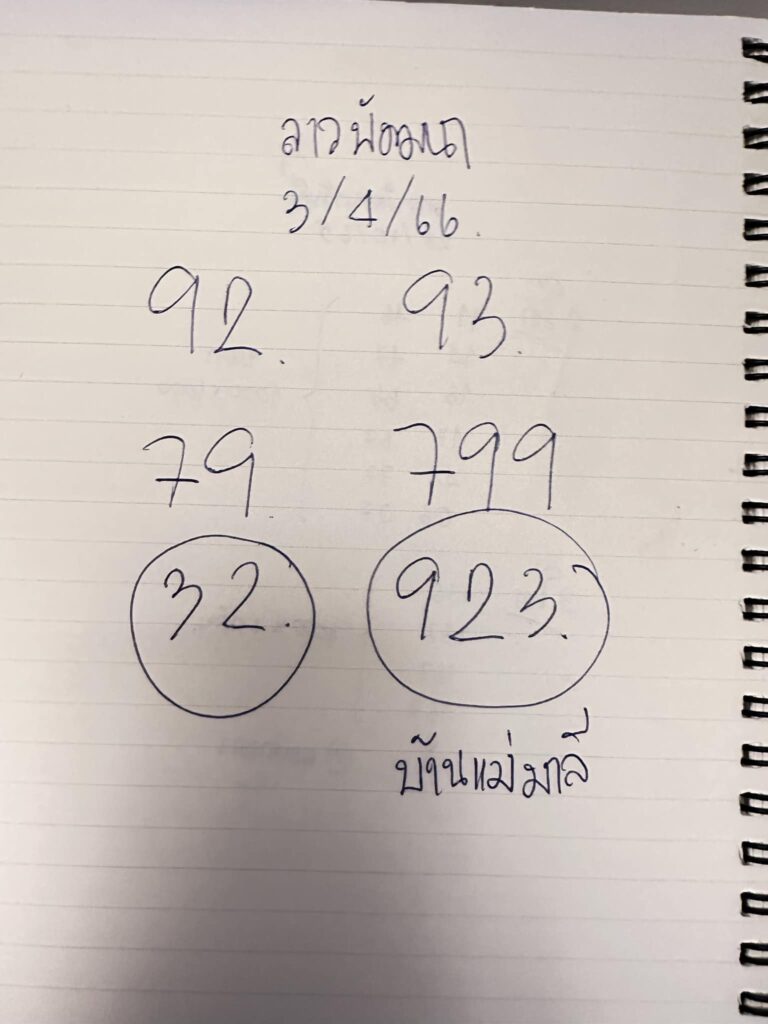 ลาวพัฒนา
3/4/66.
92. 93.
79 799
32. 923.
บ้านแม่มาลี